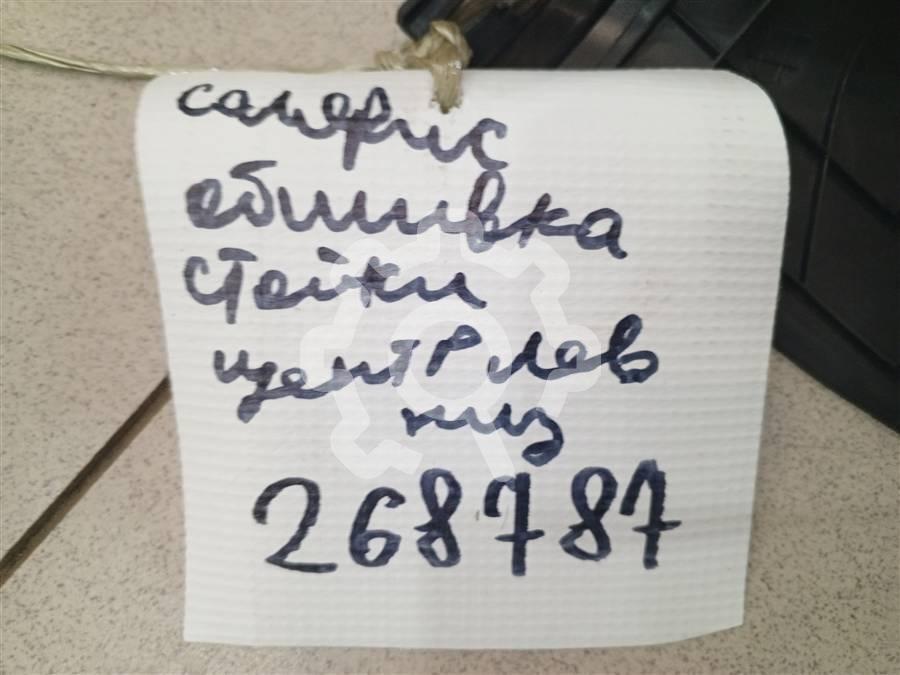 санфис
обшивка
стойки
центр лев
низ
268787